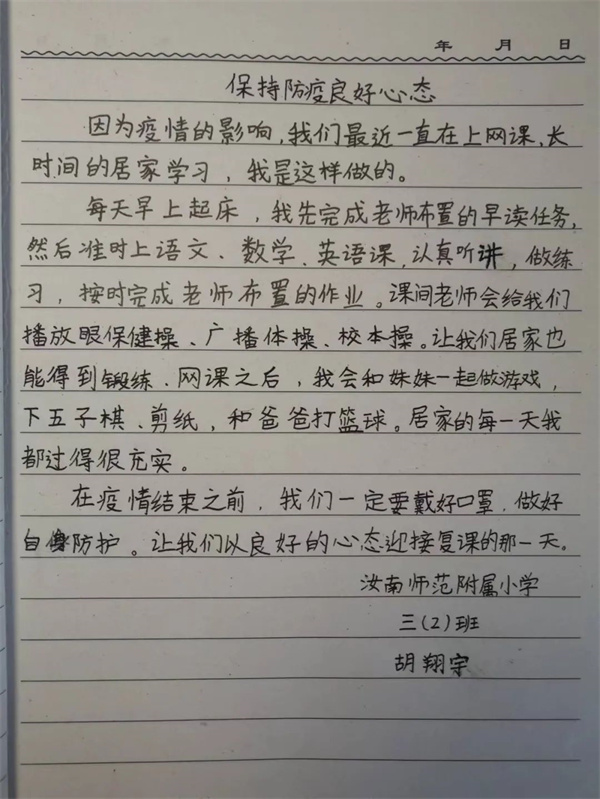 年 月 日
保持防疫良好心态
因为疫情的影响,我们最近一直在上网课、长
时间的居家学习，我是这样做的。
每天早上起床，我先完成老师布置的早读任务,
然后准时上语文、数学、英语课,认真听讲，做练
习，按时完成老师布置的作业。课间老师会给我们
播放眼保健操、广播体操、校本操。让我们居家也
能得到锻练、网课之后，我会和妹妹一起做游戏,
下五子棋、剪纸，和爸爸打篮球。居家的每一天我
都过得很充实。
在疫情结束之前，我们一定要戴好口罩，做好
自身防护。让我们以良好的心态迎接复课的那一天。
汝南师范附属小学
三(2)班
胡翔宇